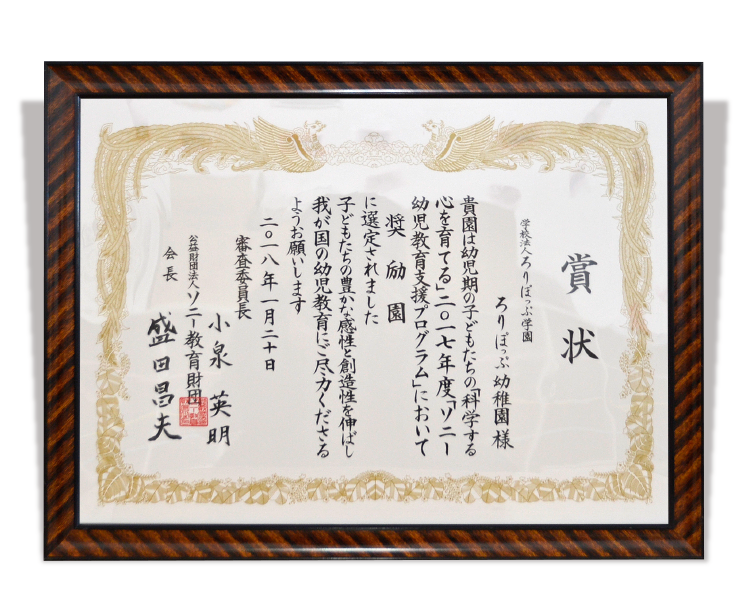 賞状
学校法人ろりぽっぷ学園
ろりぽっぷ幼稚園様
貴園は幼児期の子どもたちの「科学する
心を育てる」二〇一七年度「ソニー
幼児教育支援プログラム」において
奨励園
に選定されました
子どもたちの豊かな感性と創造性を伸ばし
我が国の幼児教育にご尽力くださる
ようお願いします
二〇一八年一月二十日
審査委員長
小泉英明
公益財団法人ソニー教育財団
会長
盛田昌夫